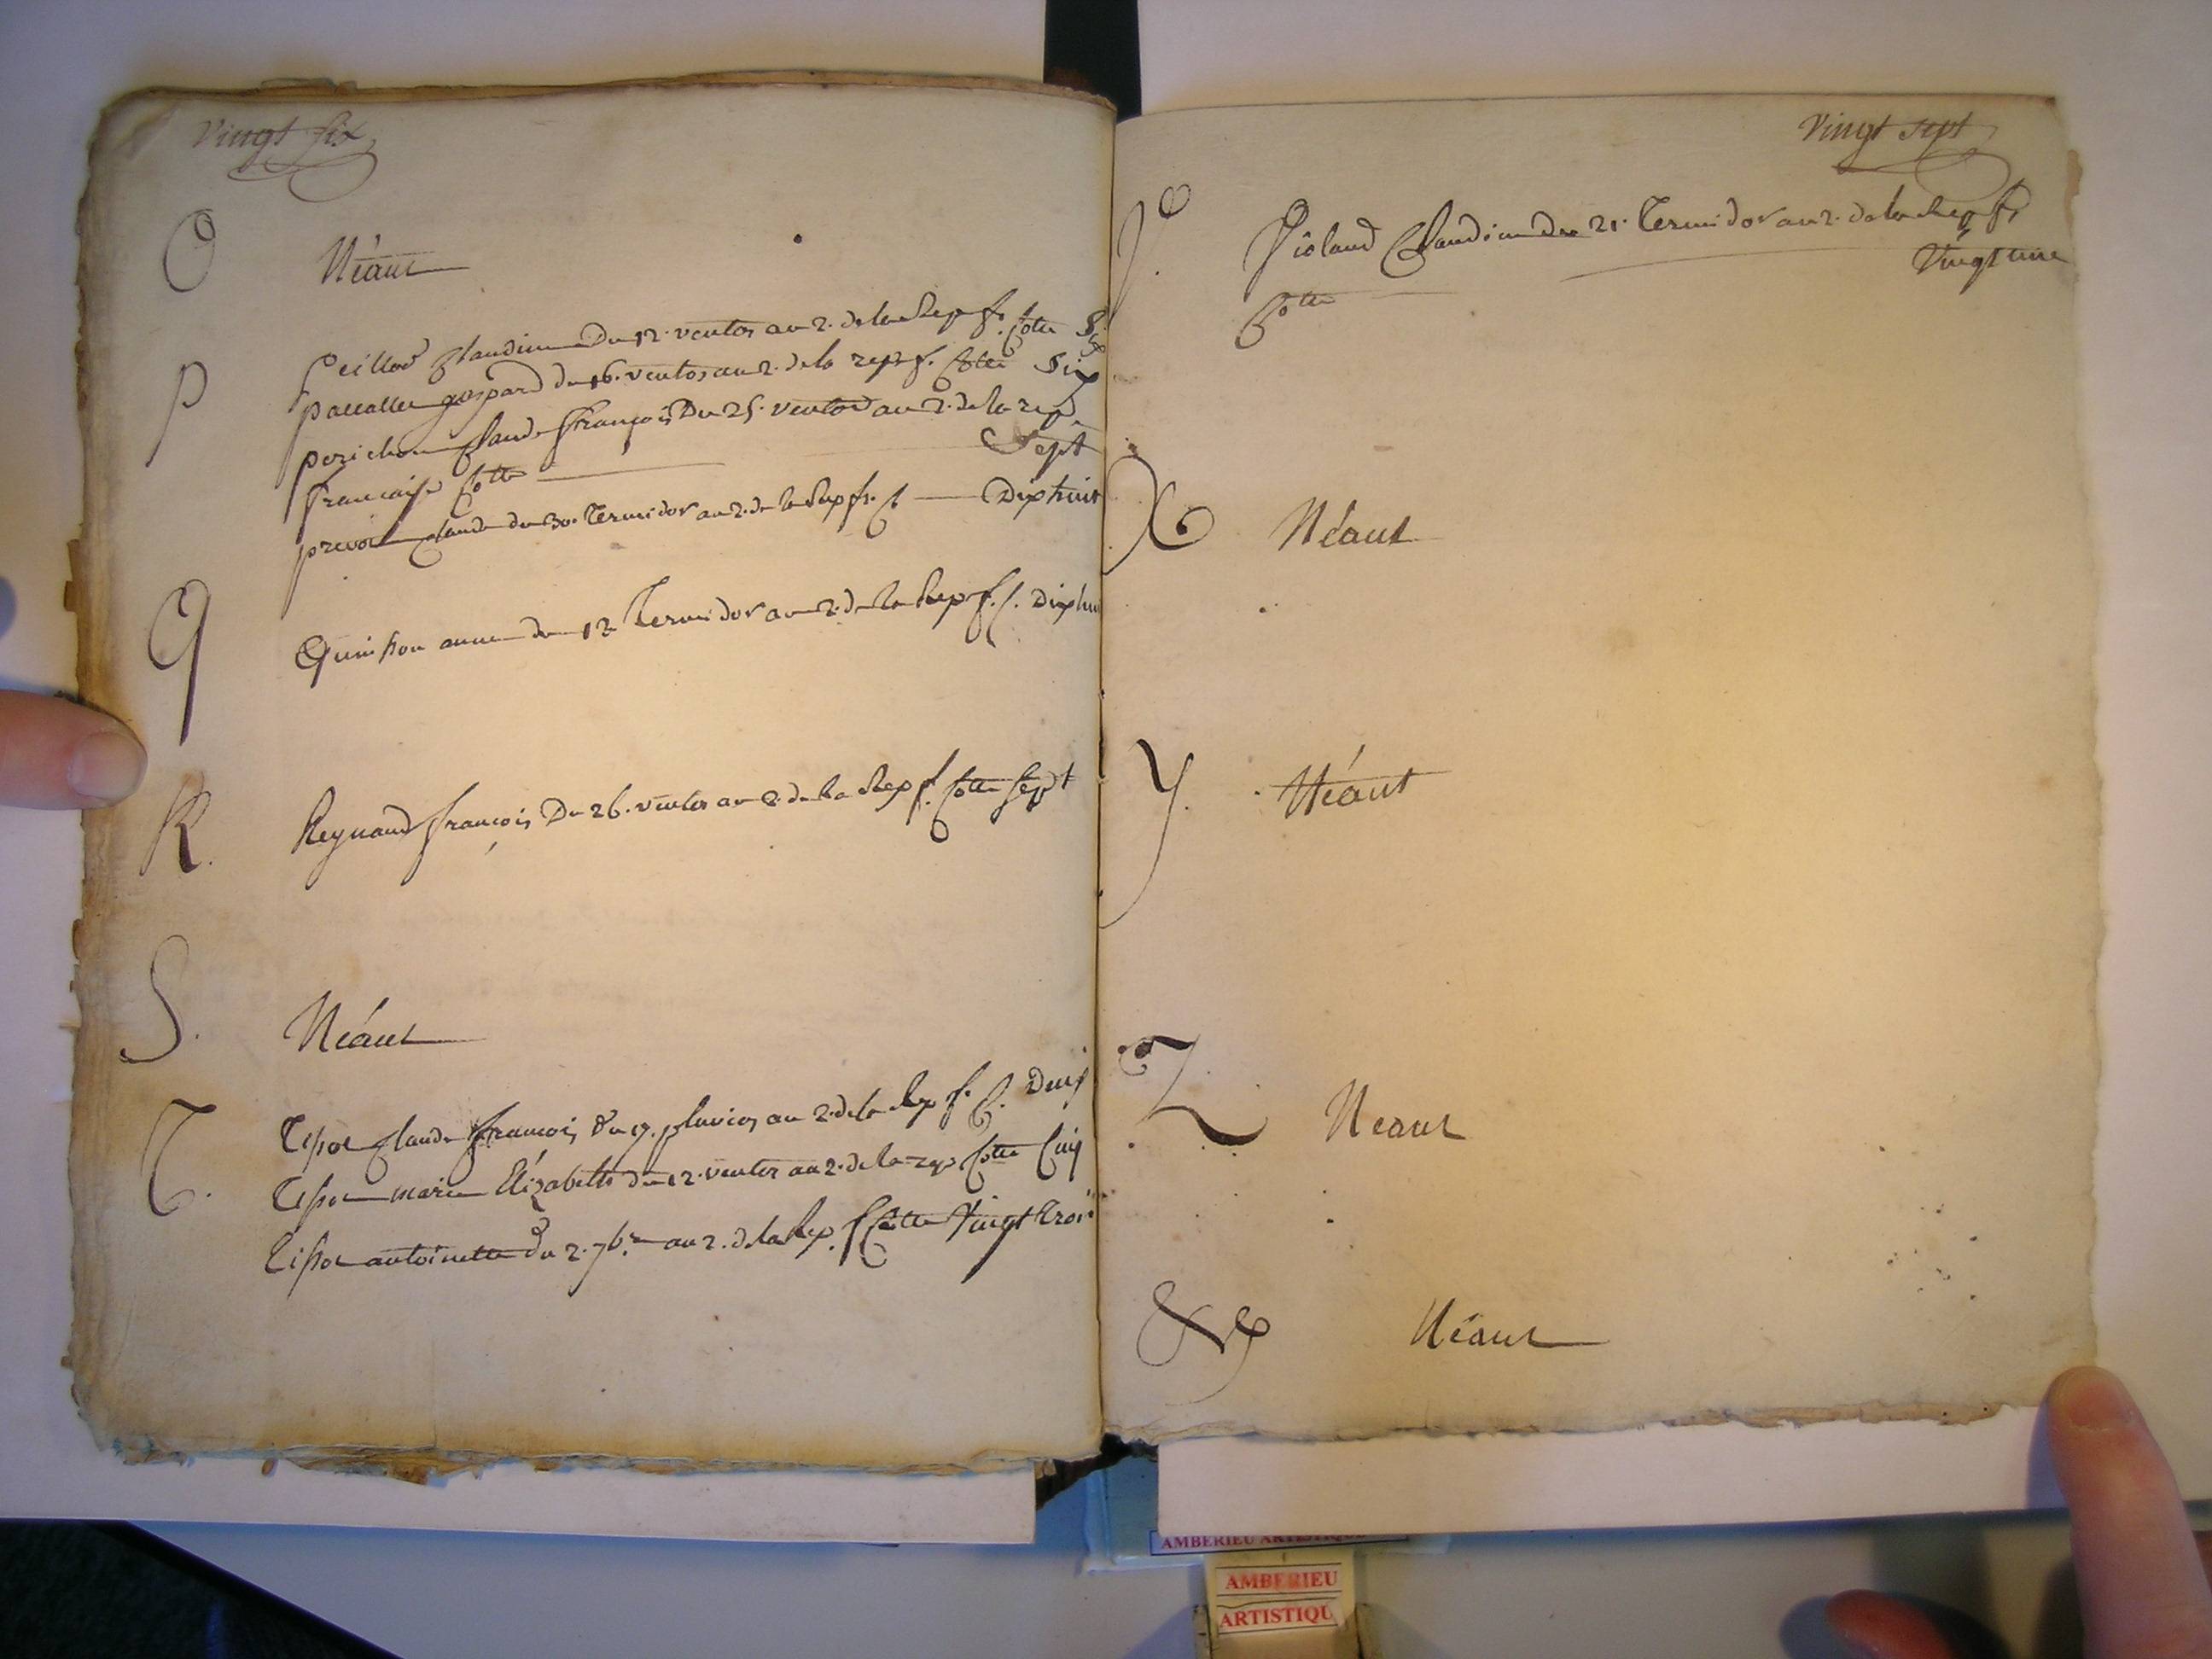 Vingt six
O
Néant
P
peillod Claudine Du 12. ventos an 2. de la Rep f. Cotte Six
paccallet gaspard du 16. ventos an 2. de la rep f. Cotte Six
perichon Claude François Du 25. ventos an 2. de la rep
francaise Cotte Sept
prevot Claude du 30. Termidor an 2. de la Rep fr. C Dixhuit
Q
Quinson anne du 12 Termidor an 2. de la Rep f. C. Dixhui
R.
Reynaud François Du 26. ventos an 2. de la Rep f. Cotte Sept
S.
Néant
T.
Tissot Claude François du 17. pluvios an 2. de la Rep f. C. Deux
Tissot marie Elizabeth du 12. ventos an 2. de la rep Cotte Cinq
Tissot antoinette du 2. 7bre an 2. de la Rep. f Cotte Vingt Trois
Vingt sept
V.
Violand Claudine Du 21. Termidor an 2. de la Rep fr
Vingt une
Cotte
X
Néant
Y.
Néant
Z
Neant
&
Néant
AMBERIEU ARTISTIQUE
AMBERIEU
ARTISTIQU